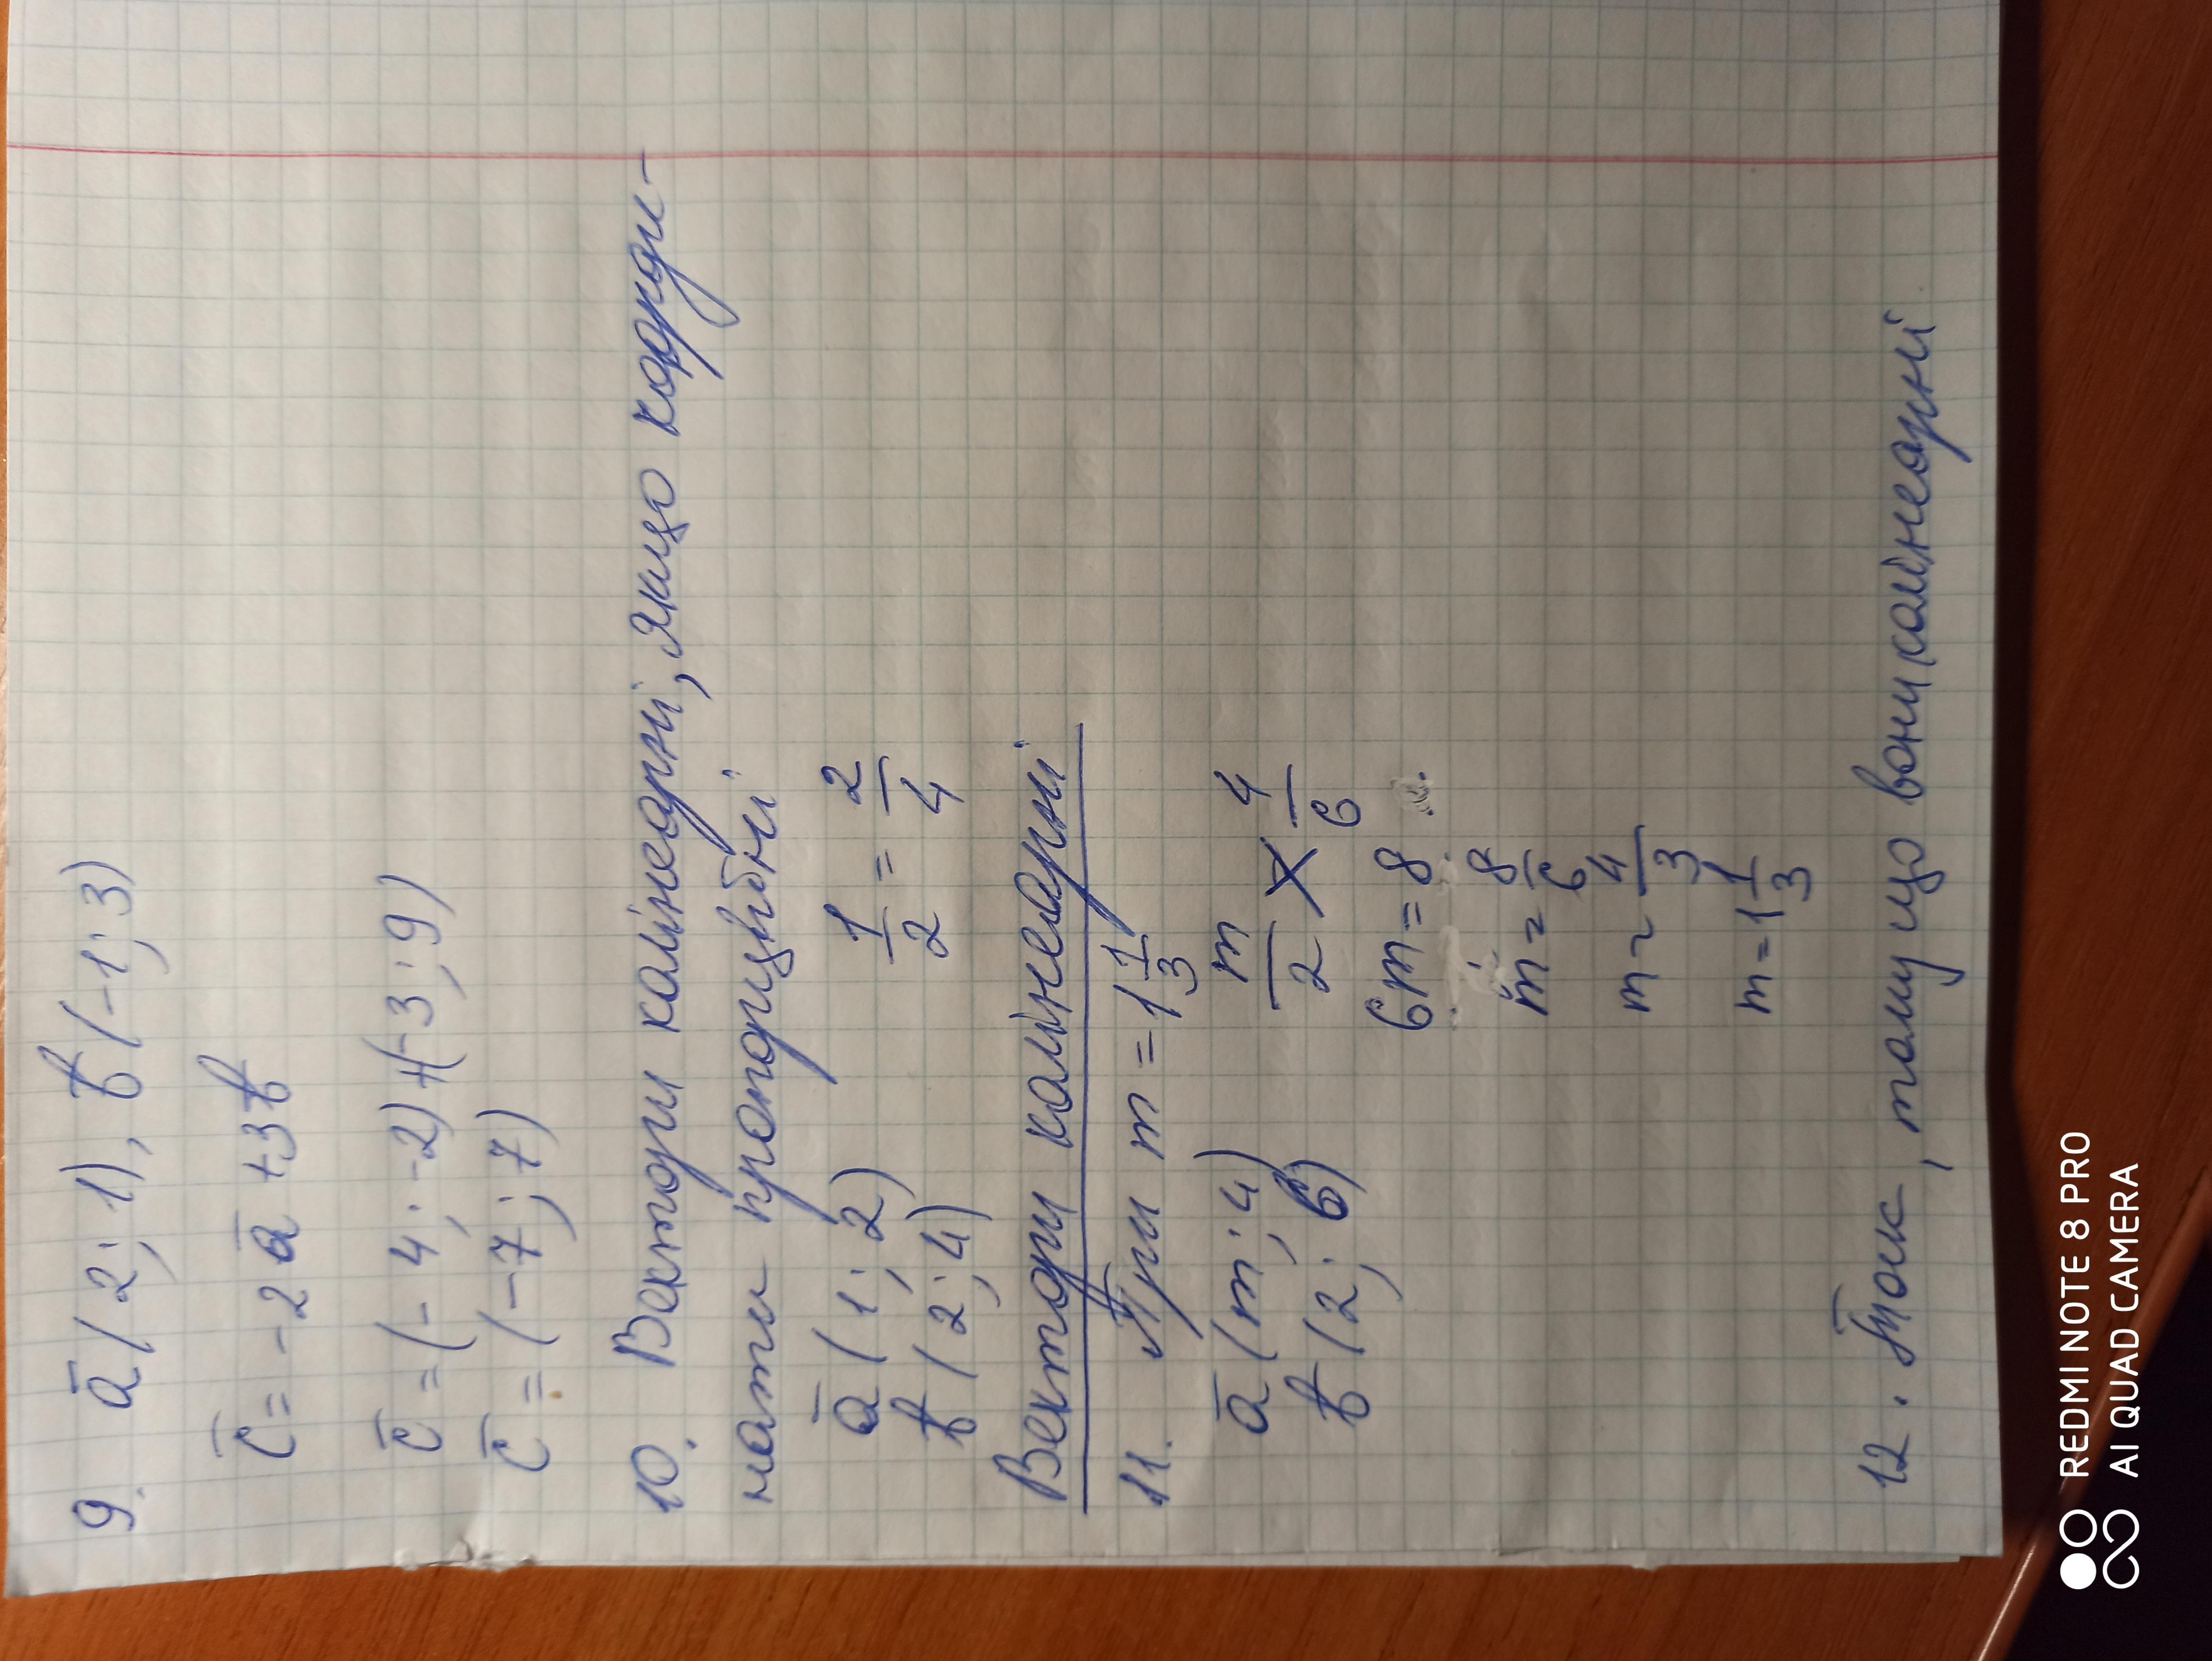 9. a̅(2; 1), b̅(-1; 3)
c̅ = -2a̅ + 3b̅
c̅ = (-4; -2) + (-3; 9)
c̅ = (-7; 7)
10. Вектори колінеарні, якщо коорди-
нати пропорційні
a̅(1; 2)
b̅(2; 4)
1/2 = 2/4
Вектори колінеарні
11. При m = 1 1/3
a̅(m; 4)
b̅(2; 6)
m/2 × 4/6
6m = 8
m = 8/6
m = 4/3
m = 1 1/3
12. Так, тому що вони колінеарні
REDMI NOTE 8 PRO
AI QUAD CAMERA